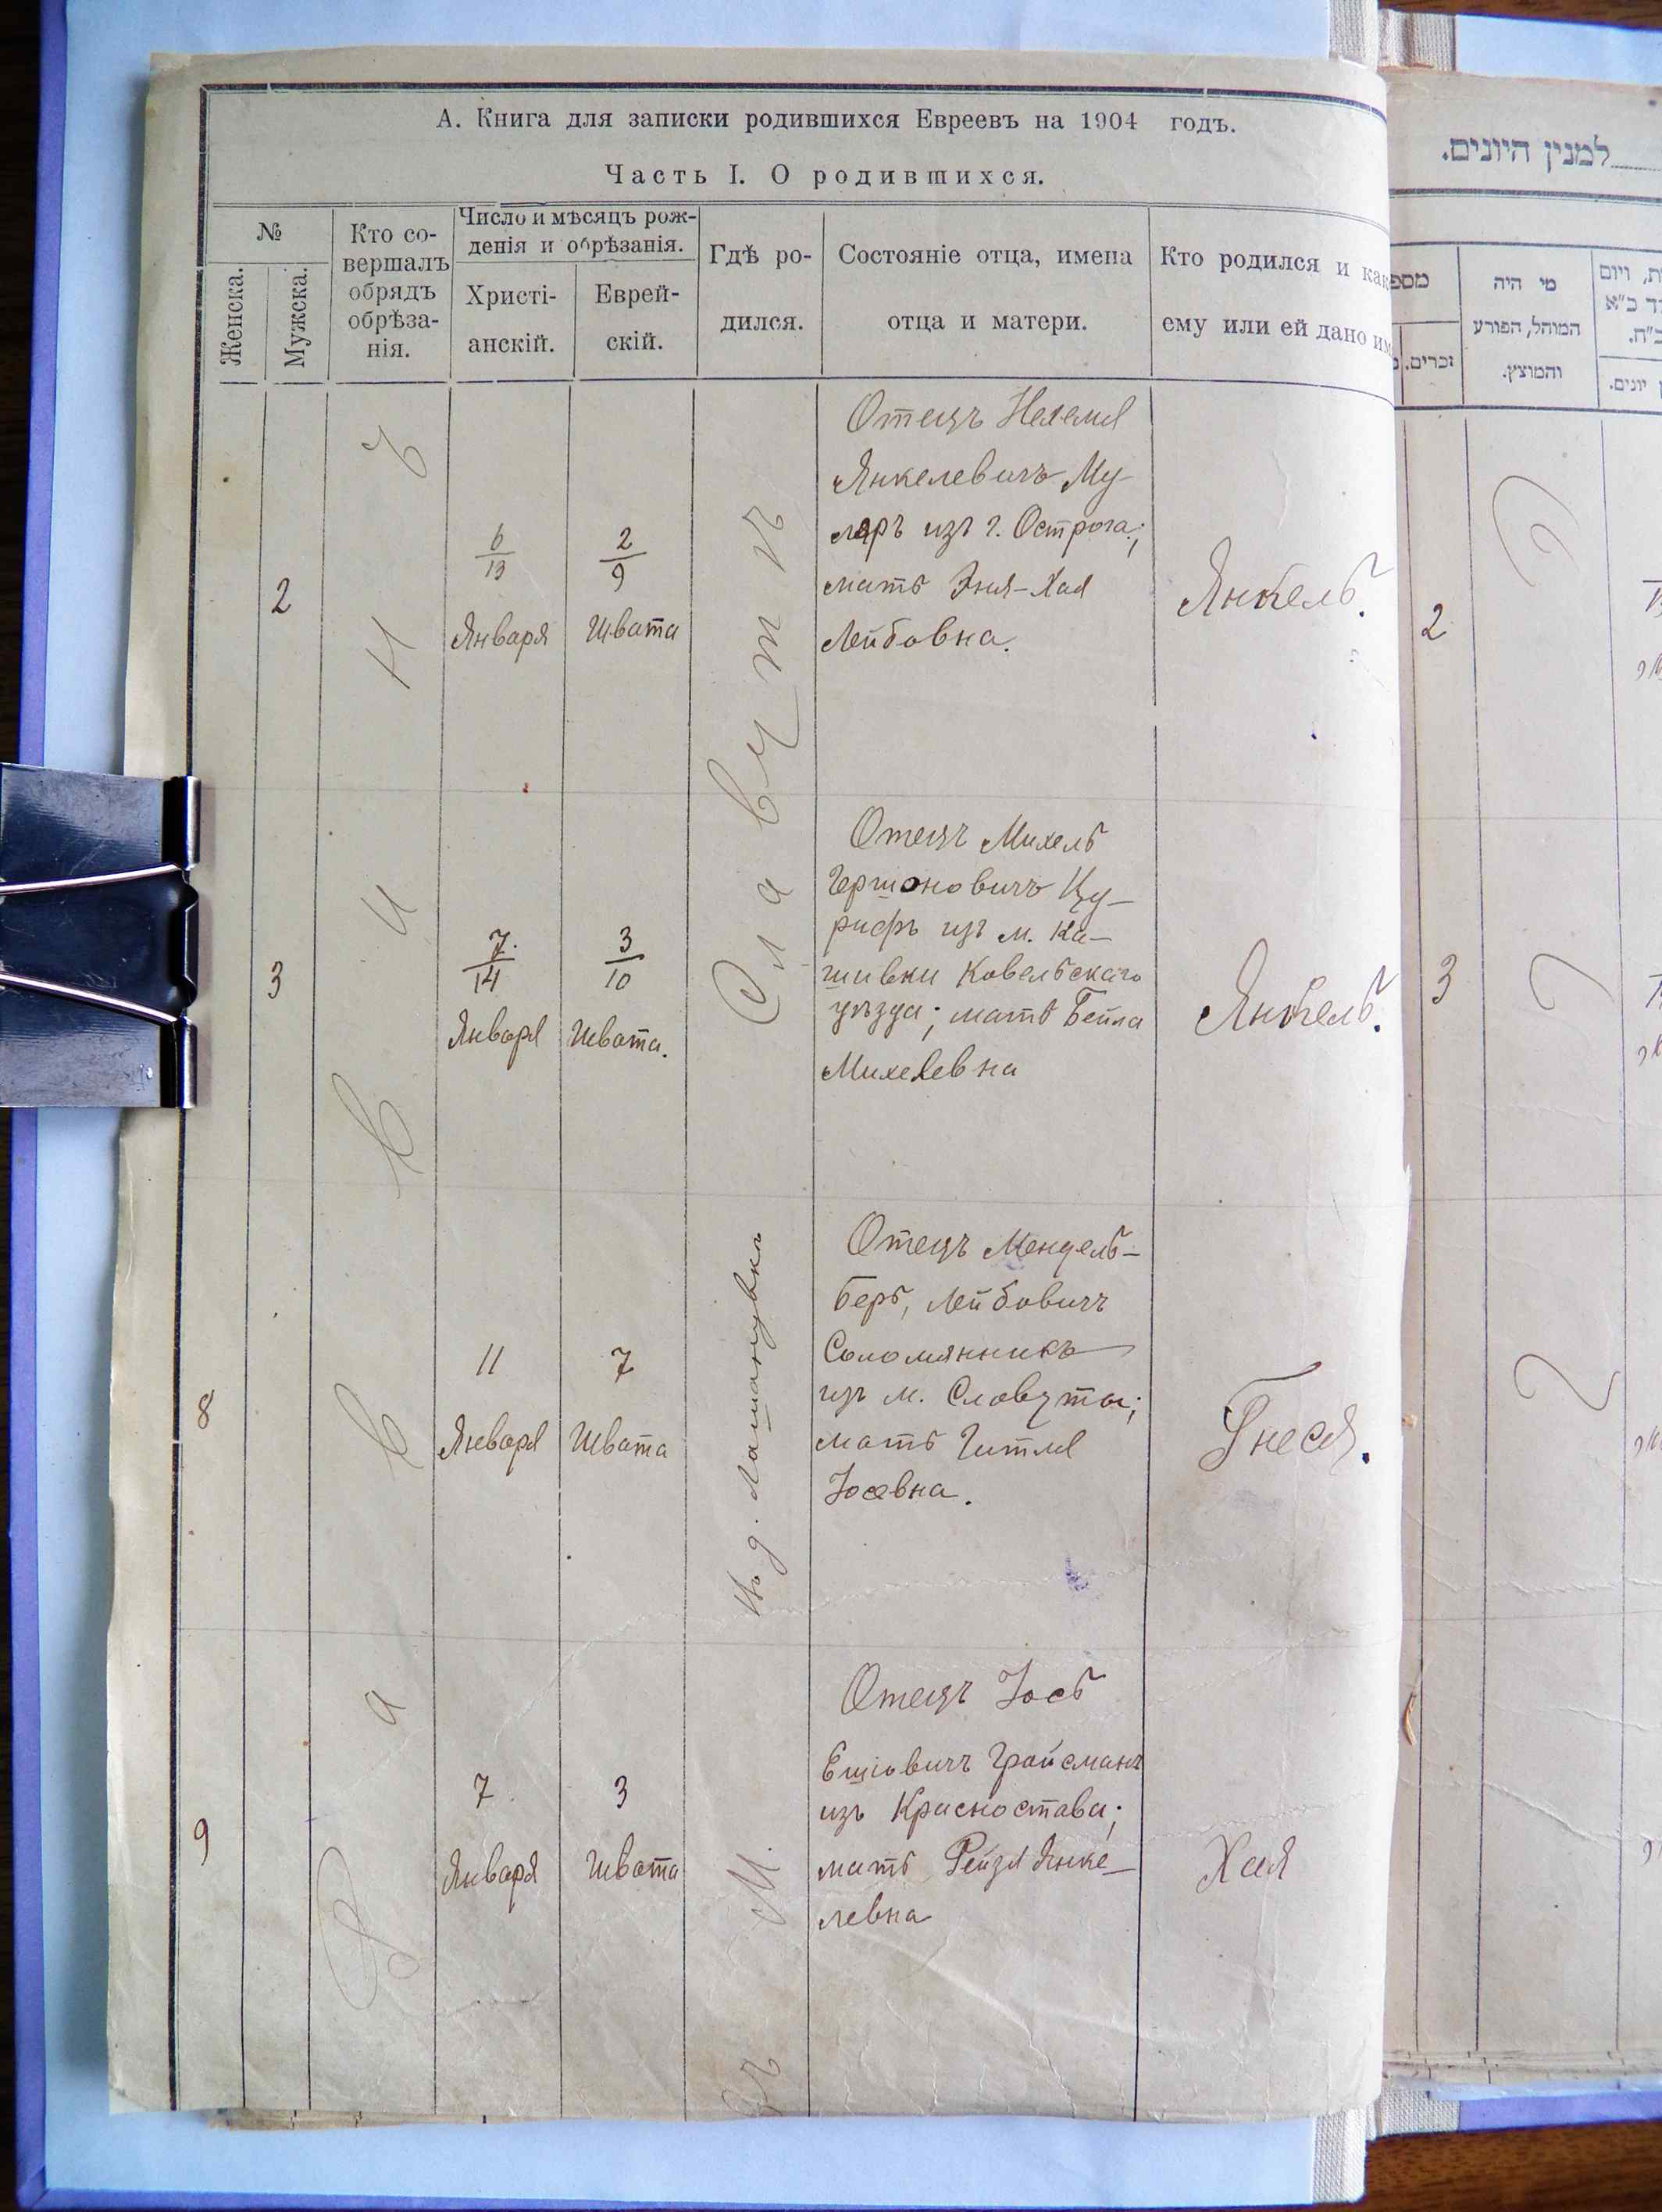 А. Книга для записки родившихся Евреевъ на 1904 годъ.
Часть I. О родившихся.
№
Женска.
Мужска.
Кто со-
вершалъ
обрядъ
обрѣза-
нія.
Число и мѣсяцъ рож-
денія и обрѣзанія.
Христі-
анскій.
Еврей-
скій.
Гдѣ ро-
дился.
Состояніе отца, имена
отца и матери.
Кто родился и как
ему или ей дано им
2
6
13
Января
2
9
Швата
Отецъ Нехемя
Янкелевичъ Му-
ляръ изъ г. Острога;
мать Эня-Хая
Лейбовна.
Янкель.
3
7
14
Января
3
10
Швата.
Отецъ Михель
Гершоновичъ Цу-
рифъ изъ м. Ка-
шивки Ковельскаго
уѣзда; мать Бейла
Михелевна
Янкель.
8
11
Января
7
Швата
Отецъ Мендель-
Беръ, Лейбовичъ
Соломянникъ
изъ м. Славуты;
мать Гитля
Іосевна.
Гнеся.
9
7
Января
3
Швата
Отецъ Іось
Ешіовичъ Гройсманъ
изъ Красностава;
мать Рейзя Янке-
левна
Хая
Раввинъ
Въ м. Славутѣ
למנין היונים.
מספ
זכרים.
מי היה
המוהל, הפורע
והמוצץ.
יונים.
2
3